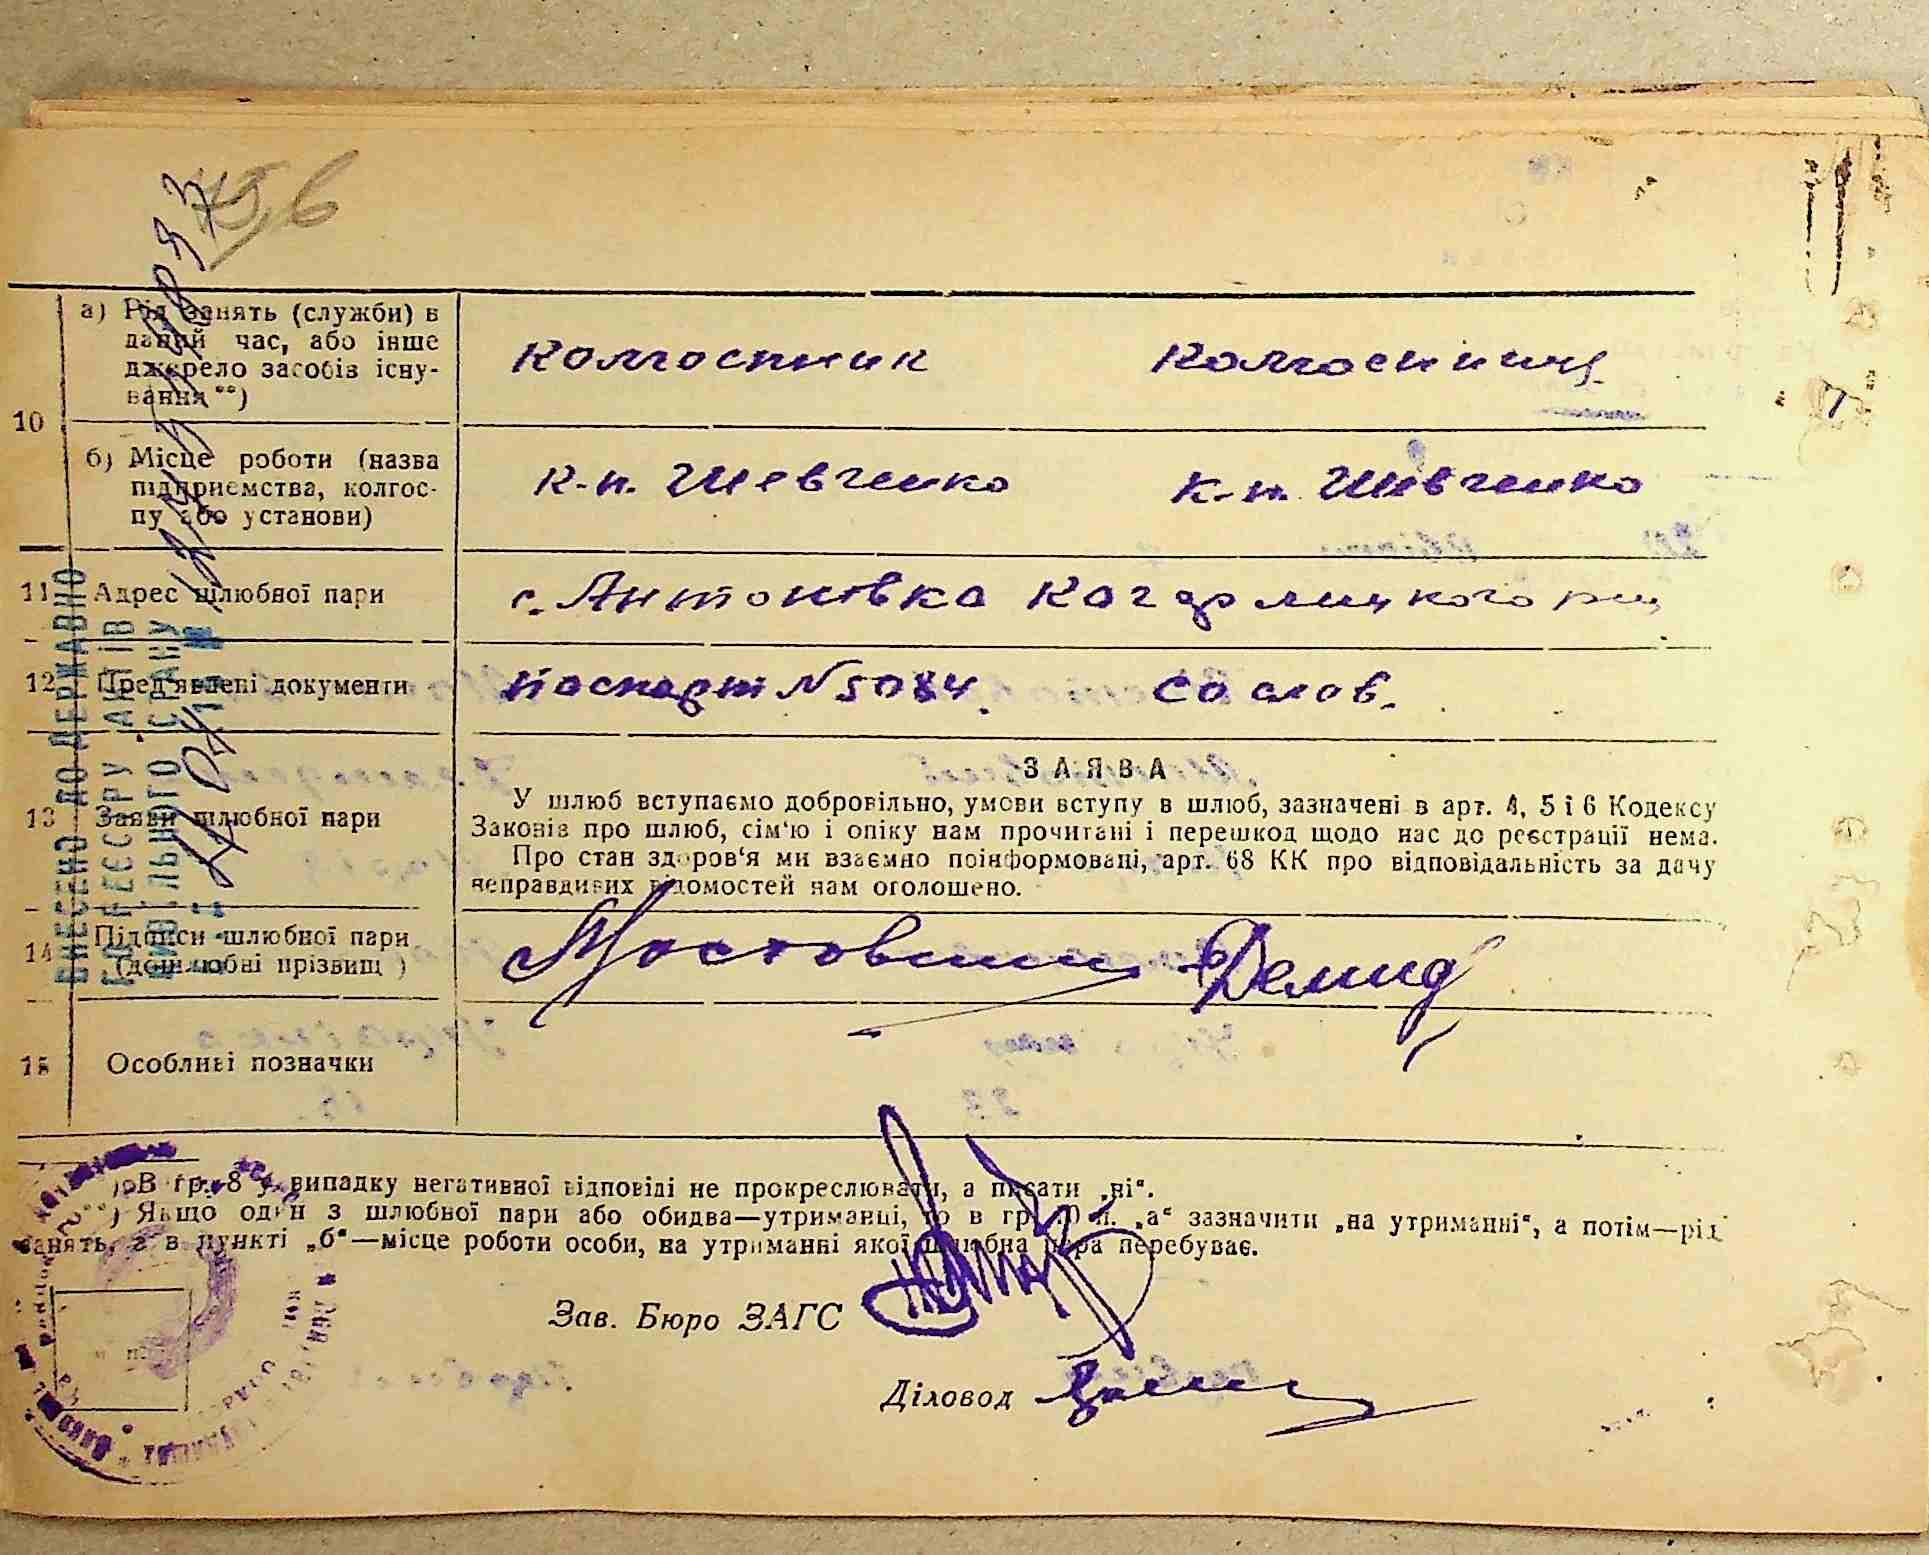 а) Рід занять (служби) в
даний час, або інше
джерело засобів існу-
вання**)
Колгоспник
10
б) Місце роботи (назва
підприємства, колгос-
пу або установи)
к-п. Шевченко к-п. Шевченко
11 Адрес шлюбної пари с. Антоновка Кагарлицкого
12 Пред'явлені документи Паспорт N 5084.
13 Заяви шлюбної пари
ЗАЯВА
У шлюб вступаємо добровільно, умови вступу в шлюб, зазначені в арт. 4, 5 і 6 Кодексу
Законів про шлюб, сім'ю і опіку нам прочитані і перешкод щодо нас до реєстрації нема.
Про стан здоров'я ми взаємно поінформовані, арт. 68 КК про відповідальність за дачу
неправдивих відомостей нам оголошено.
14 Підписи шлюбної пари
(дошлюбні прізвищ )
Демид
15 Особливі позначки
*) В гр. 8 у випадку негативної відповіді не прокреслювати, а писати „ні“.
**) Якщо один з шлюбної пари або обидва—утриманці, то в гр. 10 п. „а“ зазначити „на утриманні“, а потім—рід
занять, а в пункті „б“—місце роботи особи, на утриманні якої шлюбна пара перебуває.
Зав. Бюро ЗАГС
Діловод
ВНЕСЕНО ДО ДЕРЖАВНО
ГО РЕЄСТРУ АКТІВ
ЦИВІЛЬНОГО СТАНУ